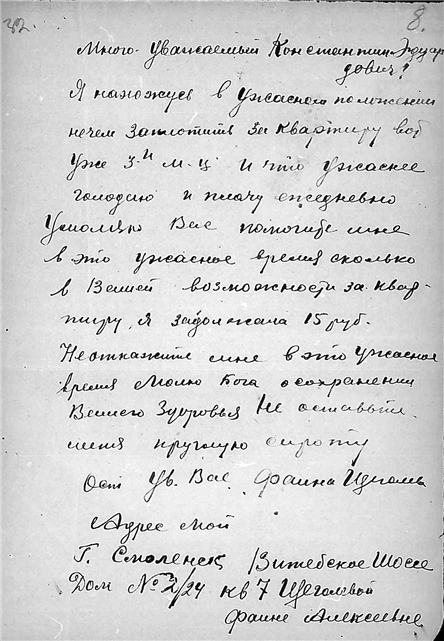 32
8.
Много-уважаемый Константин Эдуар
дович!
Я нахожусь в ужасном положении
нечем заплотить за квартиру вот
уже 3-й м-ц и что ужаснее
голодаю и плачу ежедневно
Умоляю Вас помогите мне
в это ужасное время сколько
в Вашей возможности за квар-
тиру, я задолжала 15 руб.
Неоткажите мне в это ужасное
время Молю Бога о сохранении
Вашего Здоровья Не оставьте
меня круглую сироту
Ост Ув. Вас Фаина
Адрес мой
Г. Смоленск Витебское Шоссе
Дом № 2/24 кв 7 Щеголевой
Фаине Алексеевне